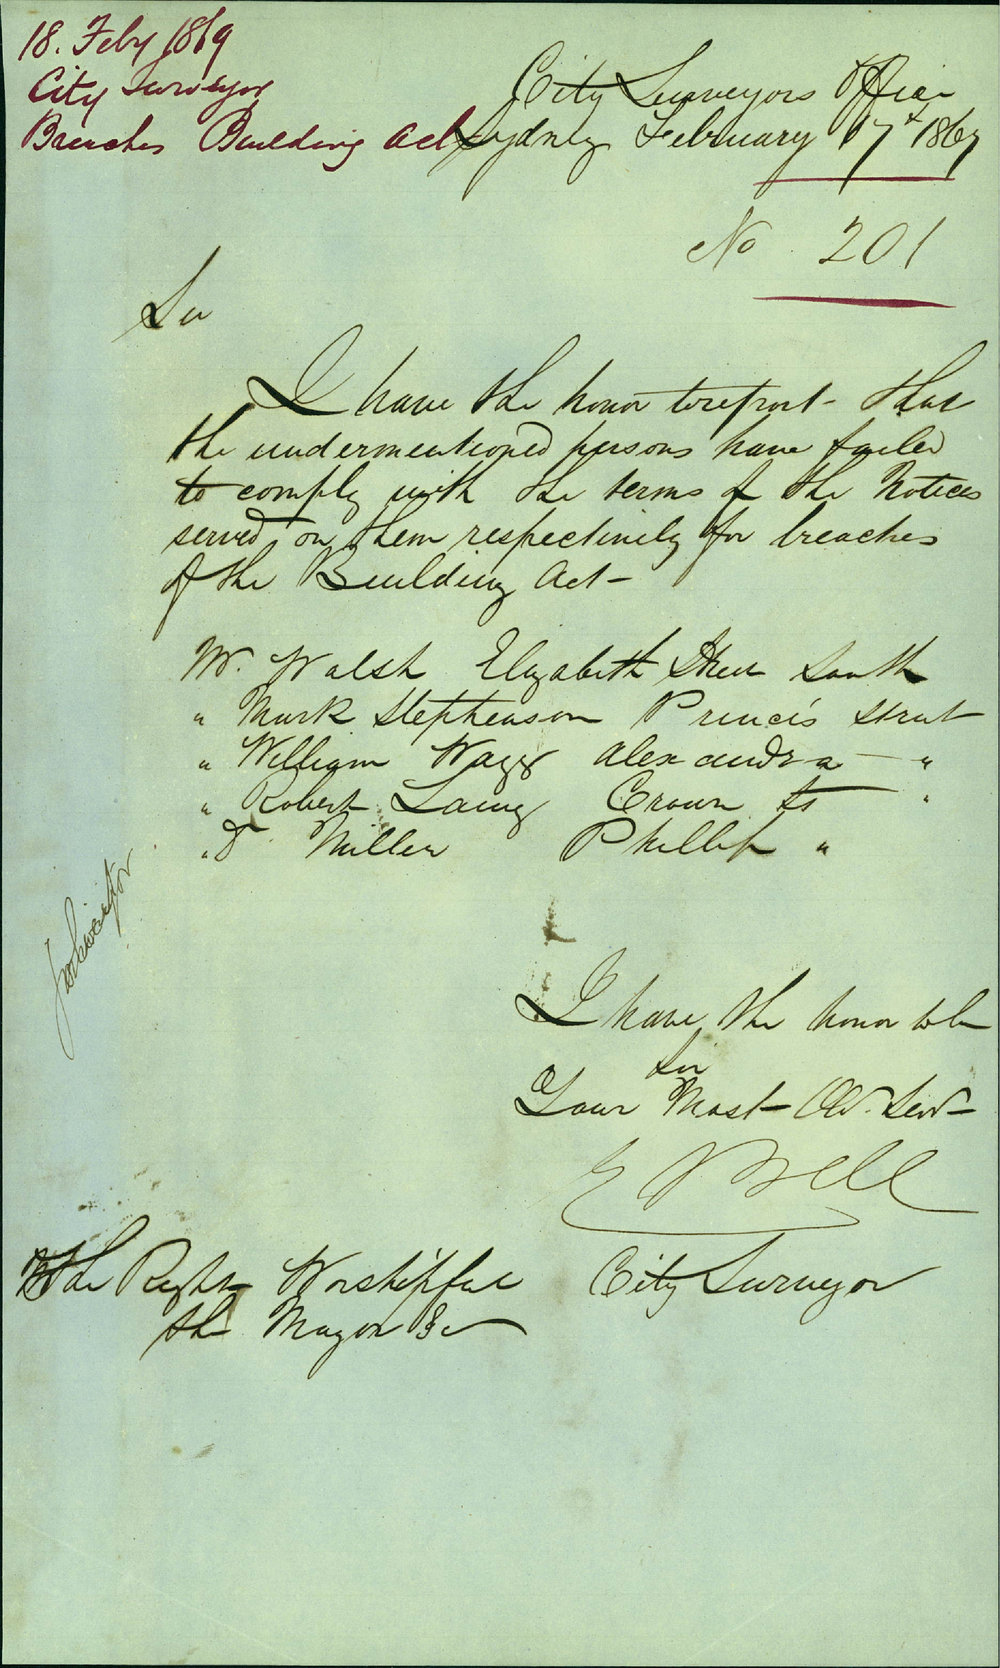 18. Feby 1869
City Surveyor
Breaches Building Act
City Surveyors Office
Sydney February 17th 1869
No 201
Sir
I have the honor to report that
the undermentioned persons have failed
to comply with the terms of the Notices
served on them respectively for breaches
of the Building Act -
Mr. Walsh Elizabeth Street South
" Mark Stephenson Princes Street
" William Wagg Alexandra - "
" Robert Laing Crown St "
" D Miller Phillip "
I have the honor to be
Sir
Your Most Obt. Servt
E Bell
City Surveyor
To the Right Worshipful
the Mayor &c